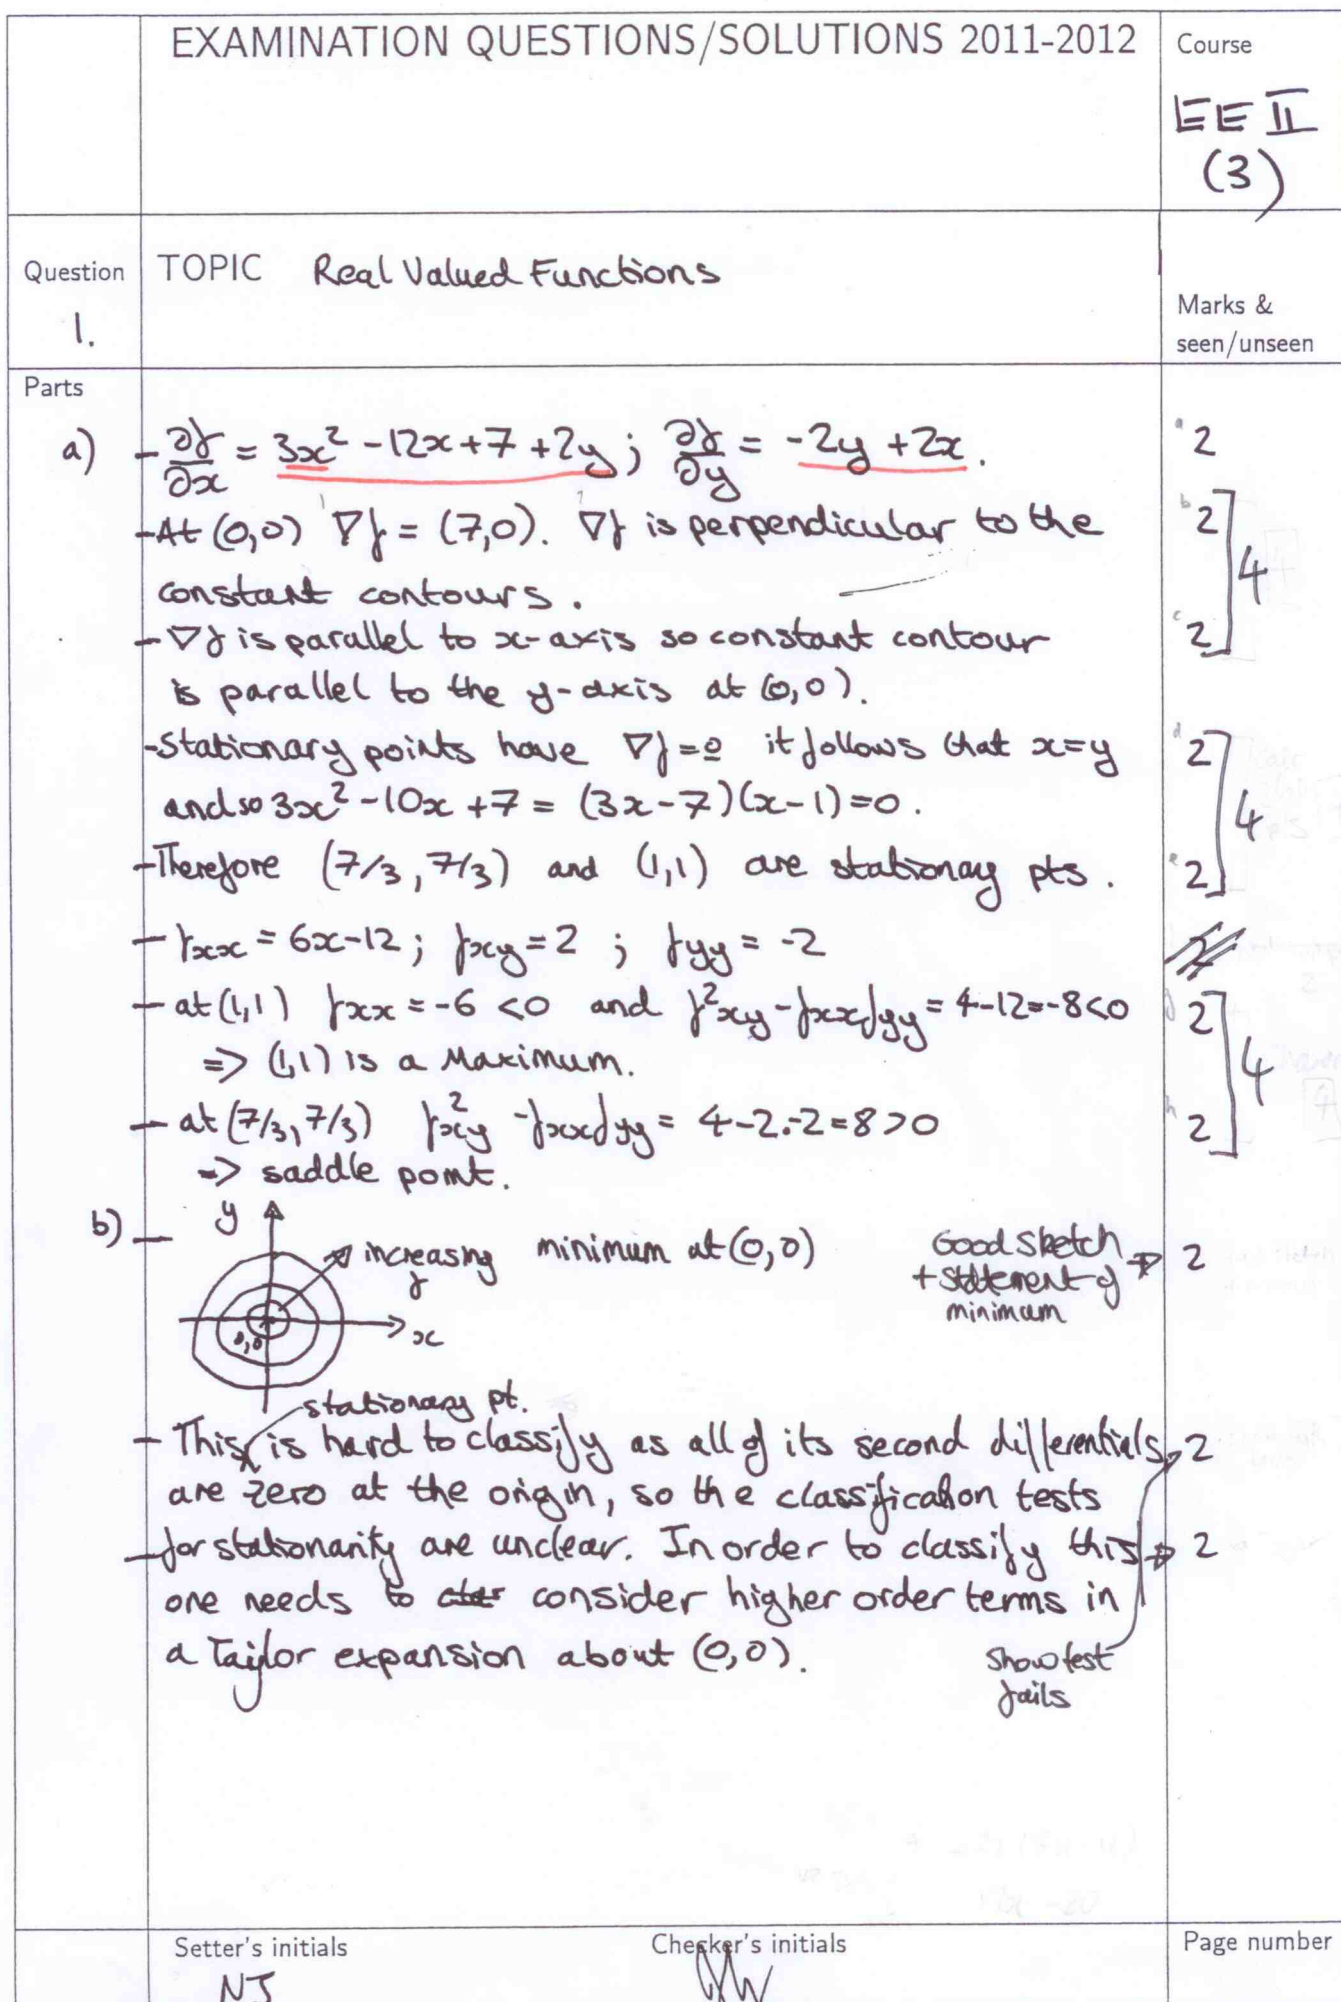 EXAMINATION QUESTIONS/SOLUTIONS 2011-2012
Course
EE II
(3)
Question
1.
TOPIC Real Valued Functions
Marks &
seen/unseen
Parts
a) - ∂f/∂x = 3x² - 12x + 7 + 2y ; ∂f/∂y = -2y + 2x . 2
- At (0,0) ∇f = (7,0). ∇f is perpendicular to the 2
constant contours. 4
- ∇f is parallel to x-axis so constant contour 2
is parallel to the y-axis at (0,0).
- Stationary points have ∇f = 0 it follows that x=y 2
and so 3x² - 10x + 7 = (3x-7)(x-1) = 0. 4
- Therefore (7/3, 7/3) and (1,1) are stationary pts. 2
- fxx = 6x-12 ; fxy = 2 ; fyy = -2 2
- at (1,1) fxx = -6 < 0 and f²xy - fxxfyy = 4-12 = -8 < 0 2
=> (1,1) is a Maximum. 4
- at (7/3, 7/3) f²xy - fxxfyy = 4-2.-2 = 8 > 0 2
=> saddle point.
b) -
y
increasing
f
minimum at (0,0)
Good sketch 2
+ statement of
minimum
0,0
x
stationary pt.
- This is hard to classify as all of its second differentials 2
are zero at the origin, so the classification tests
- for stationarity are unclear. In order to classify this 2
one needs to consider higher order terms in
a Taylor expansion about (0,0).
Show test
fails
Setter's initials
NJ
Checker's initials
Page number